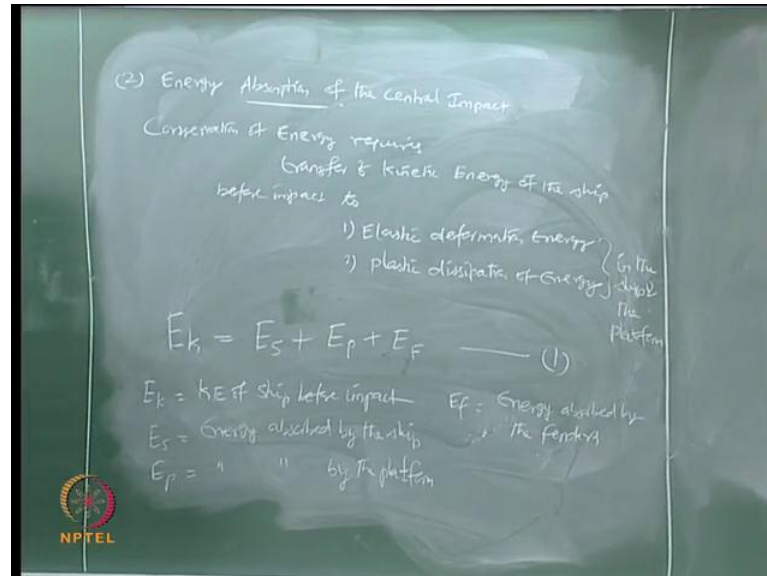 (2) Energy Absorption of the Central Impact
Conservation of Energy requires
transfer of kinetic Energy of the ship
before impact to
1) Elastic deformation Energy
2) plastic dissipation of Energy
in the
ship &
the
platform
Ek = Es + Ep + EF —— (1)
Ek = KE of ship before impact
Ef = Energy absorbed by
the fenders
Es = Energy absorbed by the ship
Ep = " " by the platform
NPTEL